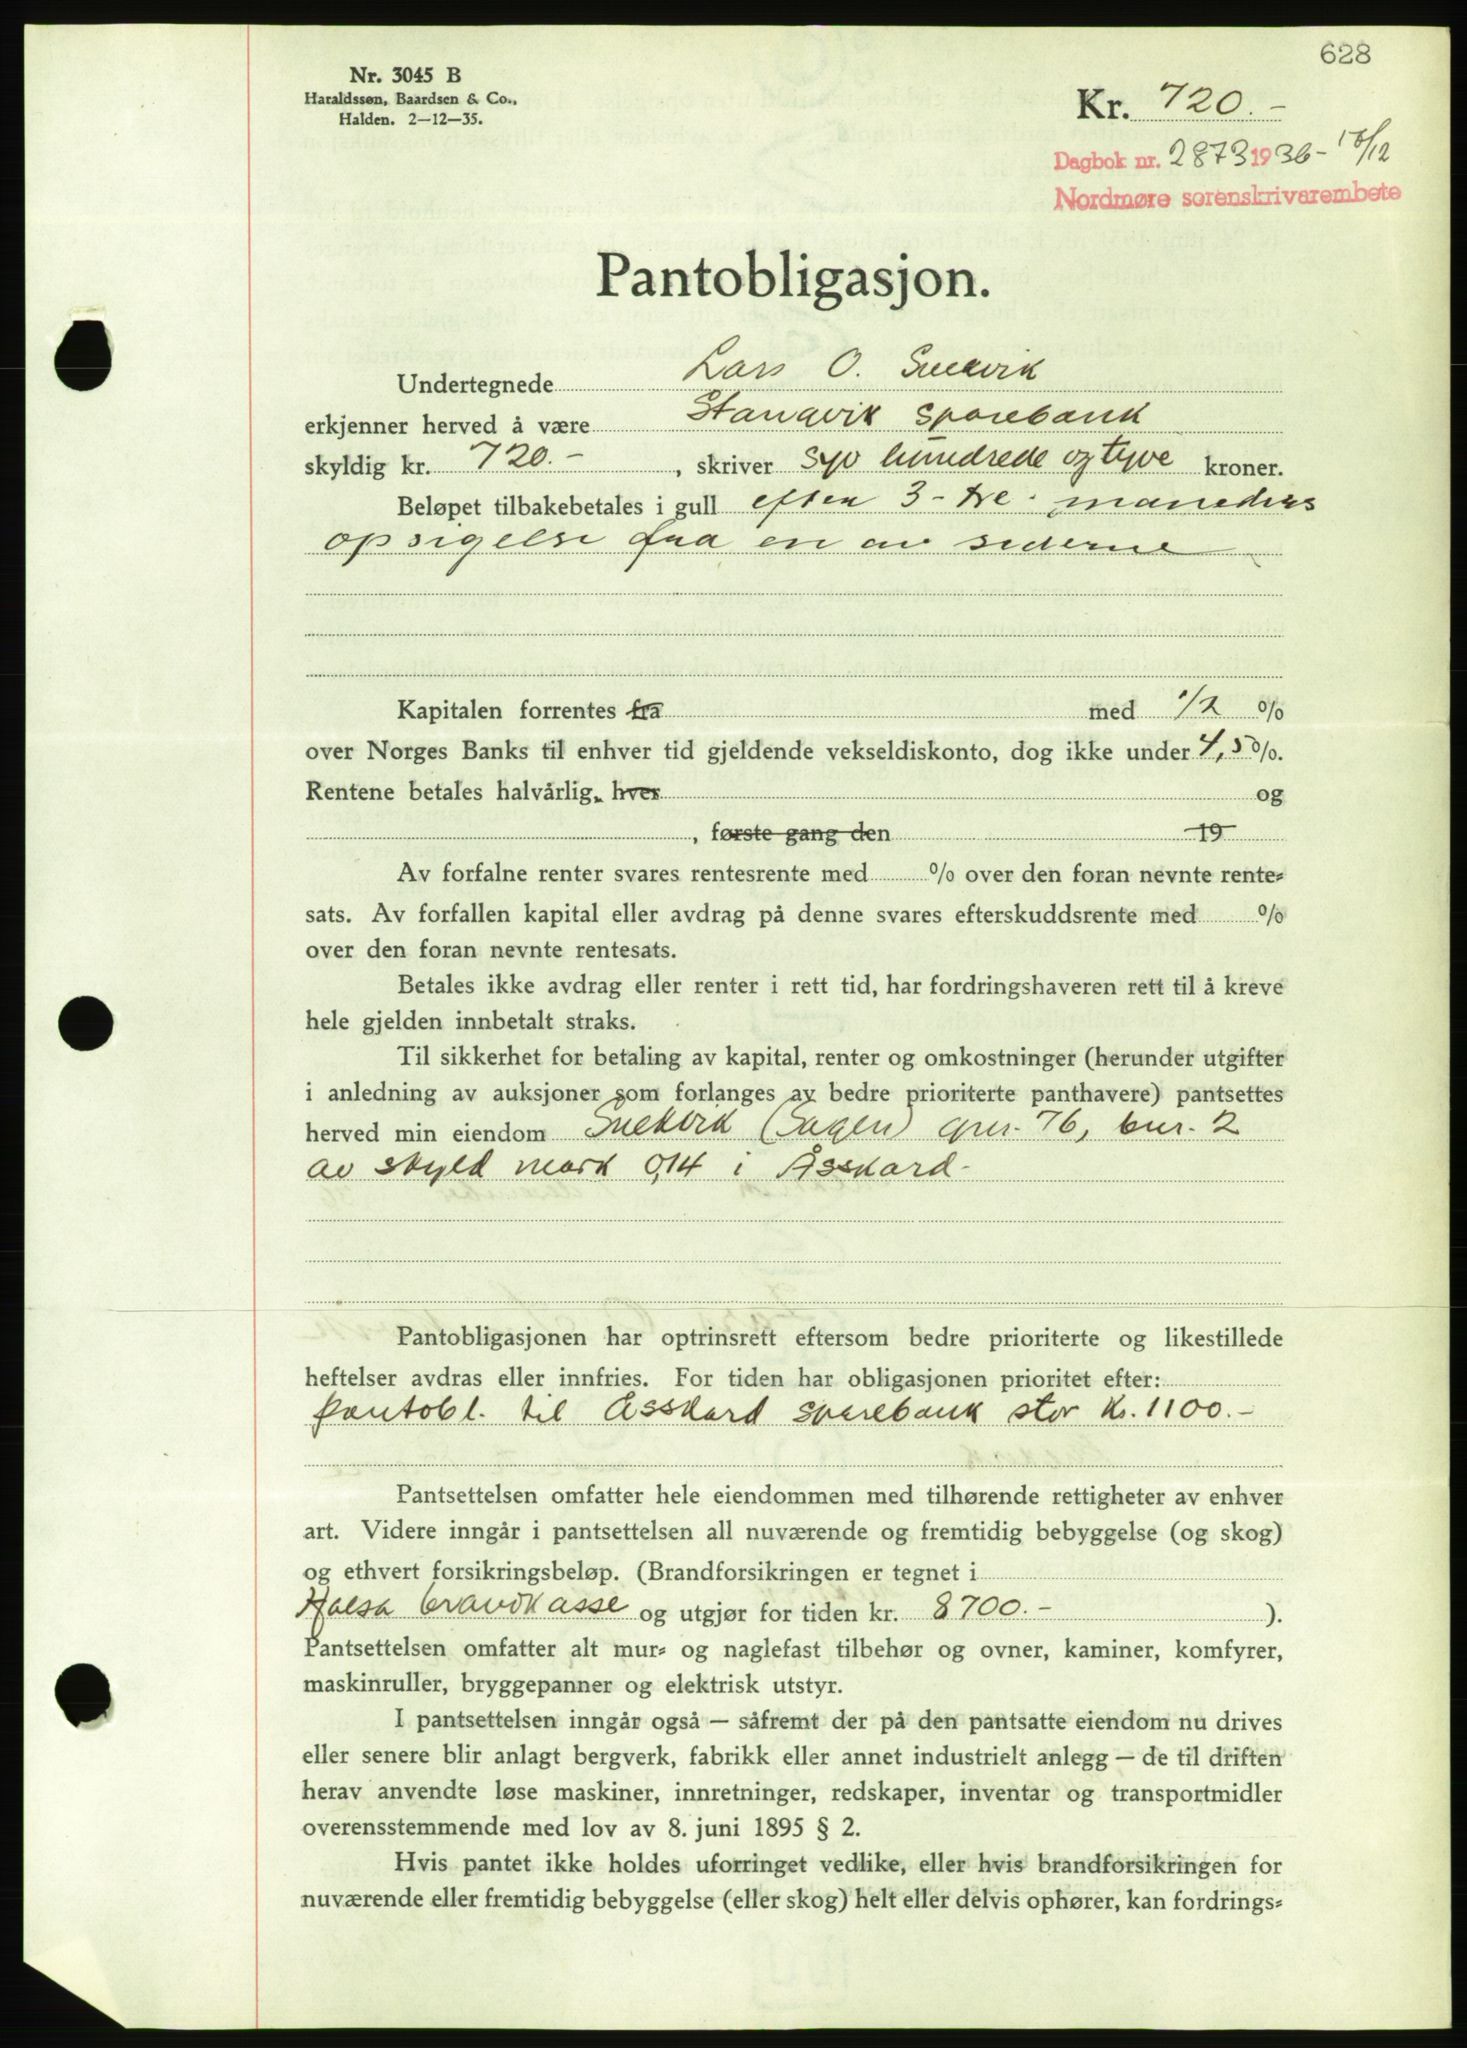 628
Nr. 3045 B
Haraldssøn, Baardsen & Co.,
Halden. 2-12-35.
Kr. 720.-
Dagbok nr. 2873 1936-
Nordmøre sorenskrivarembete
Pantobligasjon.
Undertegnede Lars O. Snekvik
erkjenner herved å være Stangvik sparebank
skyldig kr. 720.- , skriver syv hundrede og tyve kroner.
Beløpet tilbakebetales i gull efter 3 - tre - maneders
opsigelse fra en av siderne
Kapitalen forrentes fra med 1/2 %
over Norges Banks til enhver tid gjeldende vekseldiskonto, dog ikke under 4,5 %.
Rentene betales halvårlig, hver og
, første gang den 19
Av forfalne renter svares rentesrente med % over den foran nevnte rente=
sats. Av forfallen kapital eller avdrag på denne svares efterskuddsrente med %
over den foran nevnte rentesats.
Betales ikke avdrag eller renter i rett tid, har fordringshaveren rett til å kreve
hele gjelden innbetalt straks.
Til sikkerhet for betaling av kapital, renter og omkostninger (herunder utgifter
i anledning av auksjoner som forlanges av bedre prioriterte panthavere) pantsettes
herved min eiendom Snekvik (Sagen) gnr. 76, bnr. 2
av skyld mark 0,14 i Åsskard-
Pantobligasjonen har optrinsrett eftersom bedre prioriterte og likestillede
heftelser avdras eller innfries. For tiden har obligasjonen prioritet efter:
pantobl. til Åsskard sparebank stor kr. 1100.-
Pantsettelsen omfatter hele eiendommen med tilhørende rettigheter av enhver
art. Videre inngår i pantsettelsen all nuværende og fremtidig bebyggelse (og skog)
og ethvert forsikringsbeløp. (Brandforsikringen er tegnet i
Halsa brandkasse og utgjør for tiden kr. 8700.- ).
Pantsettelsen omfatter alt mur= og naglefast tilbehør og ovner, kaminer, komfyrer,
maskinruller, bryggepanner og elektrisk utstyr.
I pantsettelsen inngår også — såfremt der på den pantsatte eiendom nu drives
eller senere blir anlagt bergverk, fabrikk eller annet industrielt anlegg — de til driften
herav anvendte løse maskiner, innretninger, redskaper, inventar og transportmidler
overensstemmende med lov av 8. juni 1895 § 2.
Hvis pantet ikke holdes uforringet vedlike, eller hvis brandforsikringen for
nuværende eller fremtidig bebyggelse (eller skog) helt eller delvis ophører, kan fordrings=